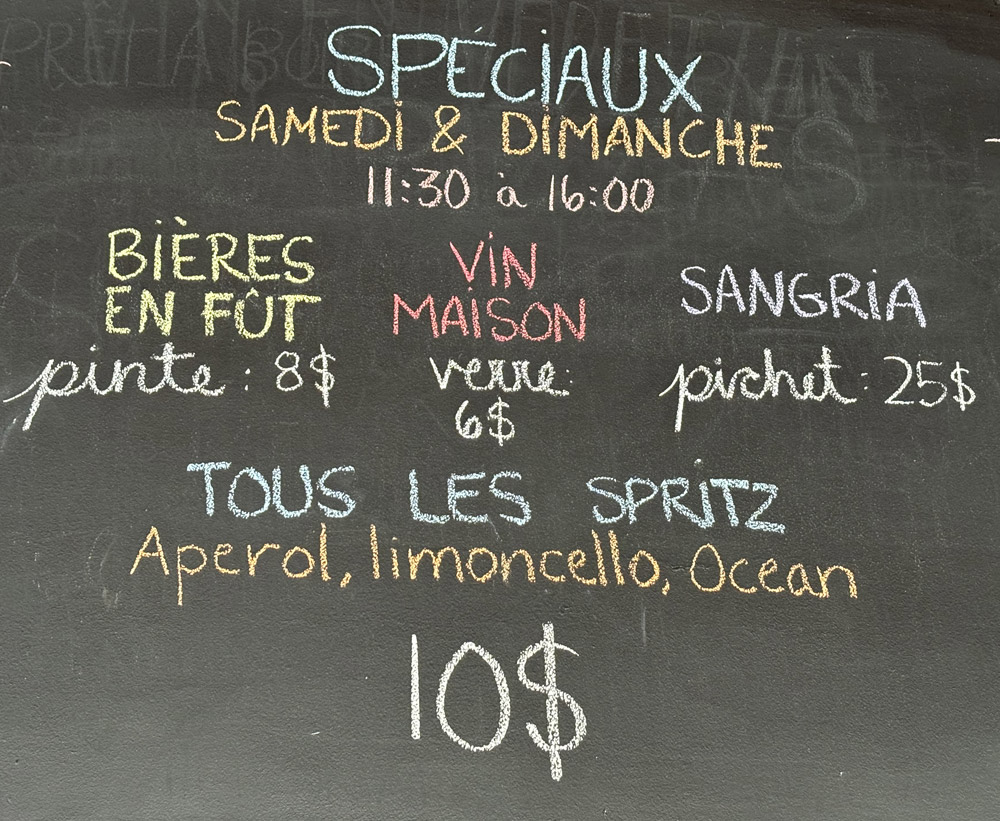 SPÉCIAUX
SAMEDI & DIMANCHE
11:30 à 16:00
BIÈRES
EN FÛT
pinte : 8$
VIN
MAISON
verre:
6$
SANGRIA
pichet : 25$
TOUS LES SPRITZ
Aperol, limoncello, Ocean
10$